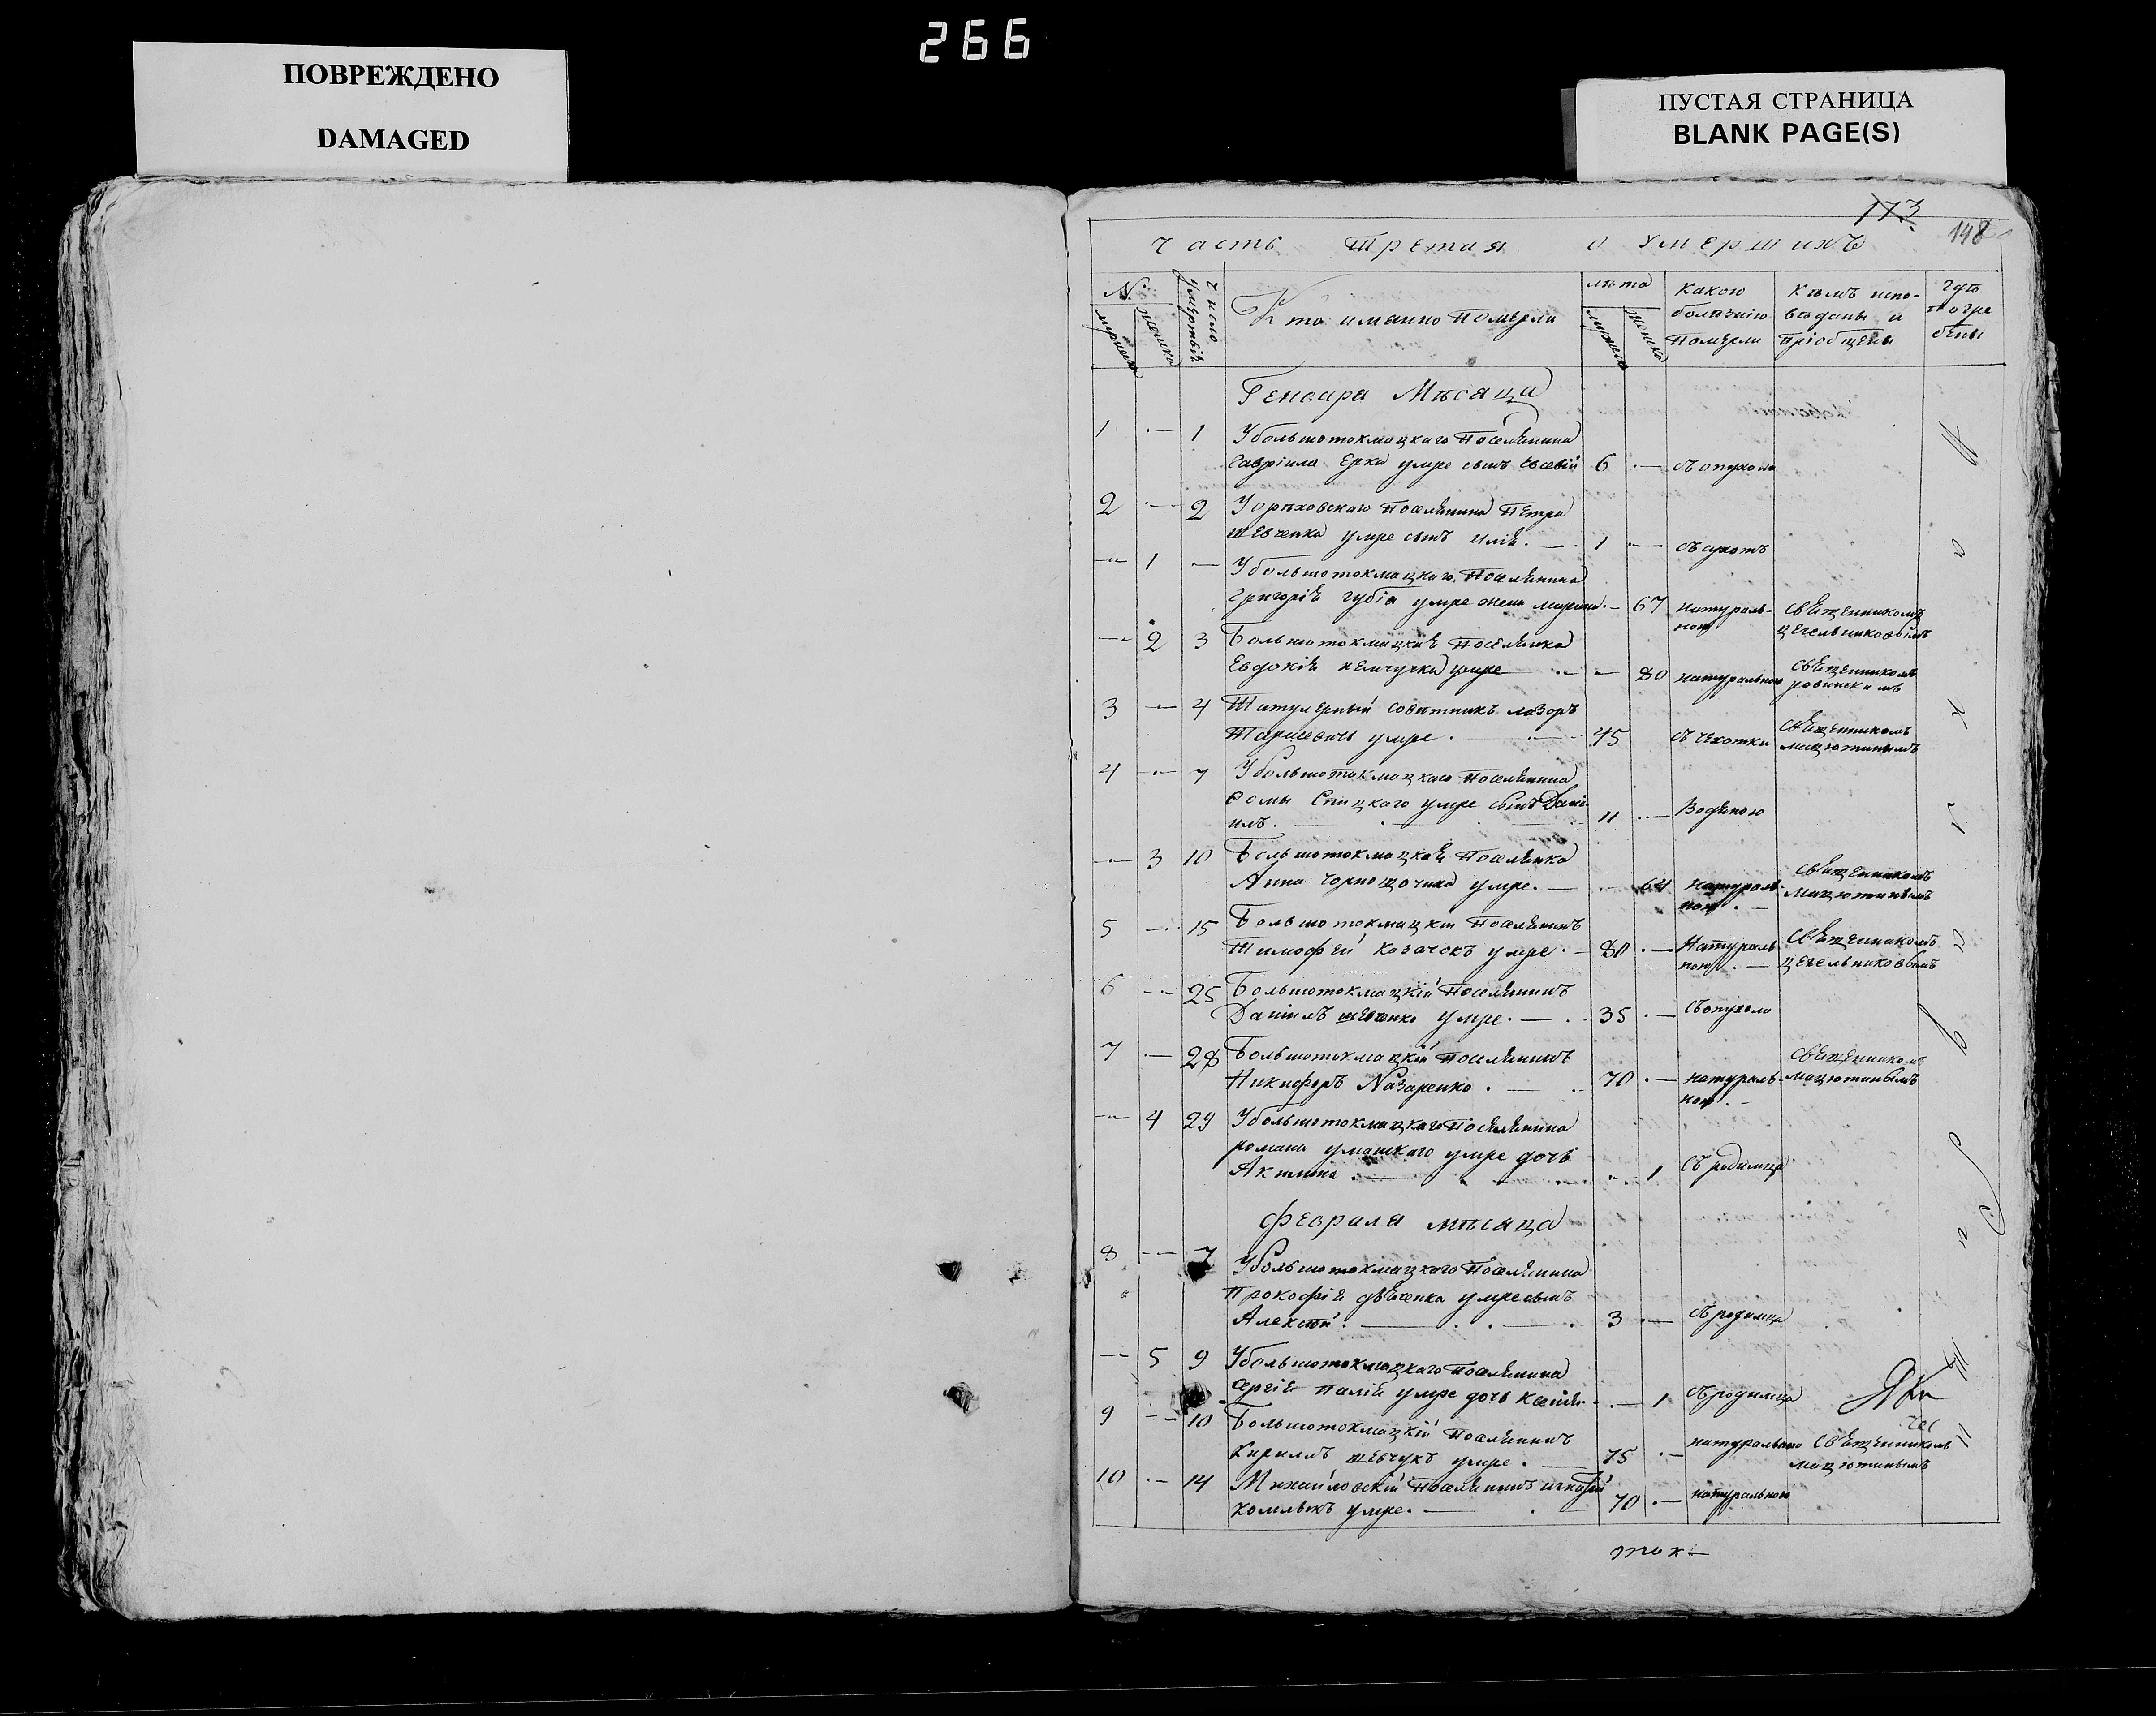 266
ПОВРЕЖДЕНО
DAMAGED
ПУСТАЯ СТРАНИЦА
BLANK PAGE(S)
173
148
Часть Третая о Умершихъ
№
мужеска
женска
число умертвій
Кто именно Померли
лѣта
мужеска
женска
какою
болѣзнію
Померли
Кѣмъ испо-
вѣданы и
пріобщены
Гдѣ
погре
бены
Генваря Мѣсяца
1 — 1 Убольшотокмацкаго Поселянина
Гавріила умре сынъ 6 — съ опухоли
2 — 2 Уорѣховскаго Поселянина Петра
шевченка умре сынъ Илія. — 1 — съ сухотъ
— 1 — Убольшотокмацкаго Поселянина
Григорія губія умре жена марина — 67 натураль- свѧщенникомъ
ною цегельниковымъ
— 2 3 Большотокмацкая Поселянка
Евдокія умре — 80 натуральною свѧщенникомъ
3 — 4 Титулярный совѣтникъ лазоръ
умре. 45 съ чехотки свѧщенникомъ
мацютинымъ
4 — 7 Убольшотокмацкаго Поселянина
Фомы умре сынъ Дані-
илъ. 11 — Водяною
— 3 10 Большотокмацкая Поселянка
Анна умре. — 64 натураль- свѧщенникомъ
ною. — мацютинымъ
5 — 15 Большотокмацкій Поселянинъ
Тимофей умре. — 80 — Натураль- свѧщенникомъ
ною. — цегельниковымъ
6 — 25 Большотокмацкій Поселянинъ
Даніилъ шевченко умре. — 35 — съ опухоли
7 — 28 Большотокмацкій поселянинъ
Никифоръ Назаренко. — 70 — натураль- свѧщенникомъ
ною. — мацютинымъ
— 4 29 Убольшотокмацкаго Поселянина
романа уманскаго умре дочь
Акилина. — 1 съ родимца
Февраля мѣсяца
8 — 7 Убольшотокмацкаго Поселянина
Прокофія умре сынъ
Алексѣй. — 3 — съ родимца
— 5 9 Убольшотокмацкаго Поселянина
сергія палія умре дочь — 1 съ родимца
9 — 10 Большотокмацкій Поселянинъ
Кирилъ шевчукъ умре. — 75 — натуральною свѧщенникомъ
мацютинымъ
10 — 14 Михайловскій Поселянинъ
умре. — 70 — натуральною
ток-